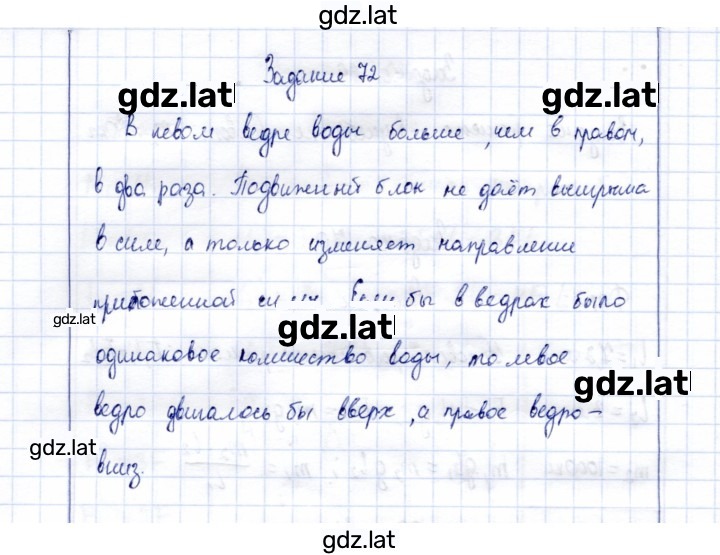 gdz.lat
Задание 72
gdz.lat gdz.lat
В левом ведре воды больше, чем в правом,
в два раза. Подвижный блок не даёт выигрыша
в силе, а только изменяет направление
приложенной бы в ведрах было
gdz.lat
gdz.lat
одинаковое количество воды, то левое
gdz.lat
ведро двигалось бы вверх, а правое ведро –
gdz.lat
вниз.
gdz.lat